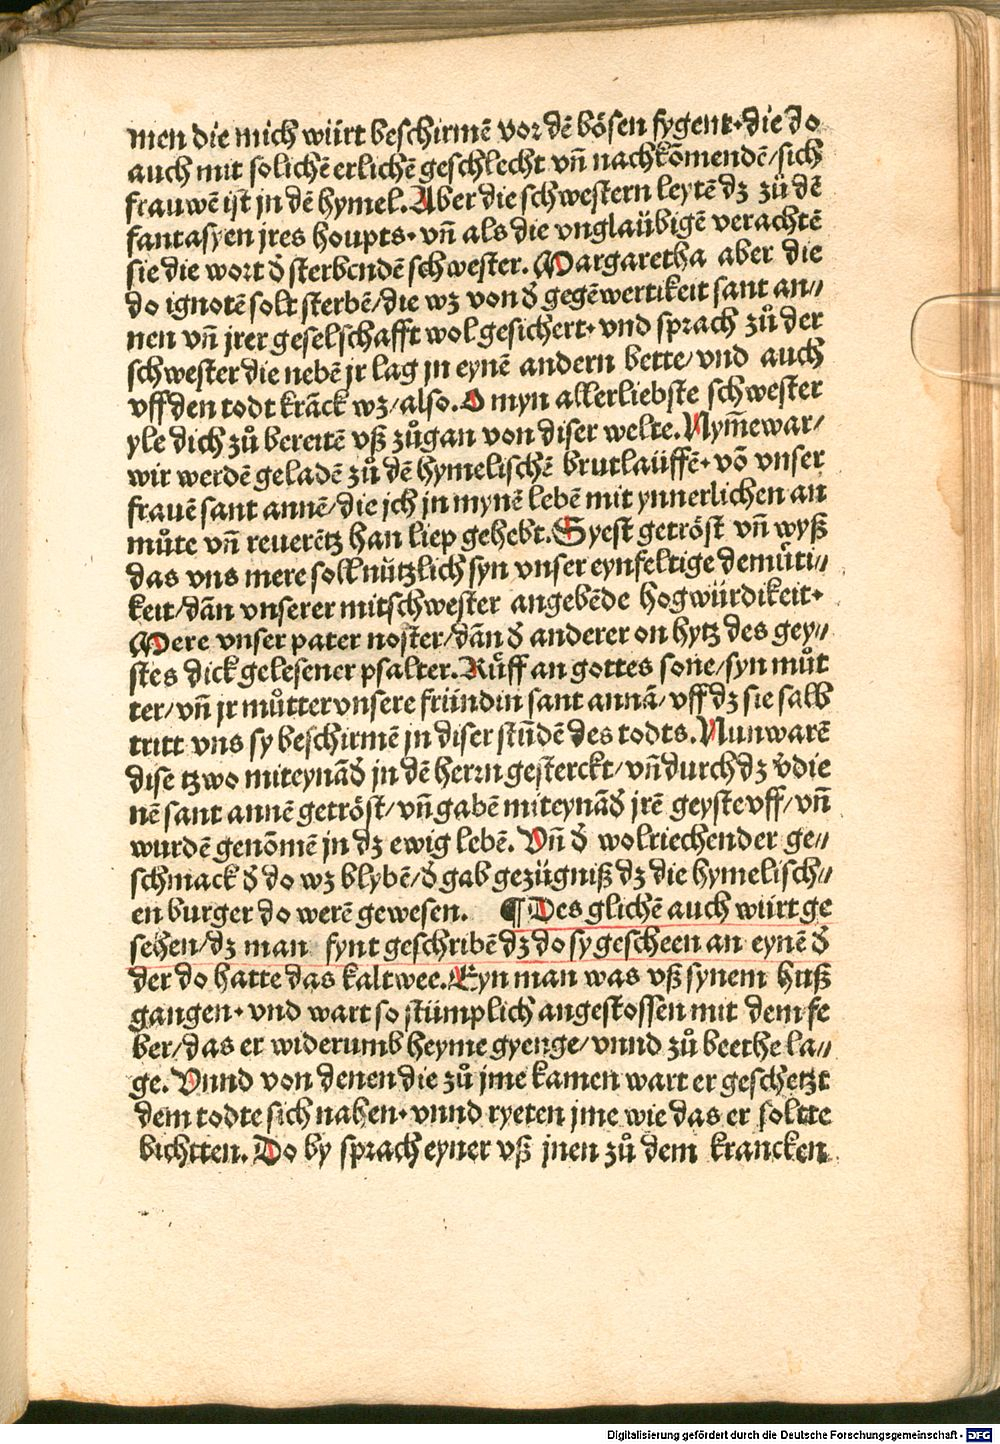 men die mich würt beschirmē vor dē bösen fygent. die do
auch mit solichē erlichē geschlecht vñ nachkōmendē/sich
frauwē ist jn dē hymel. Aber die schwestern leytē dz zů dē
fantasyen jres houpts. vñ als die vnglaübigē verachtē
sie die wort d̄ sterbendē schwester. Margaretha aber die
do ignotē solt sterbē/die wz von d̄ gegēwertikeit sant an//
nen vñ jrer geselschafft wol gesichert. vnd sprach zů der
schwester die nebē jr lag jn eynē andern bette/vnd auch
vff den todt krāck wz/also. O myn allerliebste schwester
yle dich zů bereitē vß zůgan von diser welte. Nym̄ewar/
wir werdē geladē zů dē hymelischē brutlaüffē. vō vnser
frauē sant annē/die jch jn mynē lebē mit ynnerlichen an
můte vñ reuerētz han liep gehebt. Syest getröst vñ wyß
das vns mere soll nützlich syn vnser eynfeltige demůti//
keit/dān vnserer mitschwester angebēde hogwürdikeit.
Mere vnser pater noster/dān d̄ anderer on hytz des gey//
stes dick gelesener psalter. Růff an gottes sone/syn můt
ter/vñ jr můtter vnsere fründin sant annā/vff dz sie salb
tritt vns sy beschirmē jn diser stūdē des todts. Nun warē
dise tzwo miteynād̄ jn dē herrn gesterckt/vñ durch dz v̄die
nē sant annē getröst/vñ gabē miteynād̄ jrē geyste vff/vñ
wurdē genōmē jn dz ewig lebē. Vñ d̄ wolriechender ge//
schmack d̄ do wz blybē/d̄ gab gezügniß dz die hymelisch//
en burger do werē gewesen. ¶ Des glichē auch würt ge
sehen/dz man fynt geschribē dz do sy gescheen an eynē d̄
der do hatte das kaltwee. Eyn man was vß synem huß
gangen. vnd wart so stümplich angestossen mit dem fe
ber/das er widerumb heyme gyenge/vnnd zů beethe la//
ge. Vnnd von denen die zů jme kamen wart er geschetzt
dem todte sich nahen. vnnd ryeten jme wie das er soltte
bichtten. Do by sprach eyner vß jnen zů dem krancken
Digitalisierung gefördert durch die Deutsche Forschungsgemeinschaft - DFG